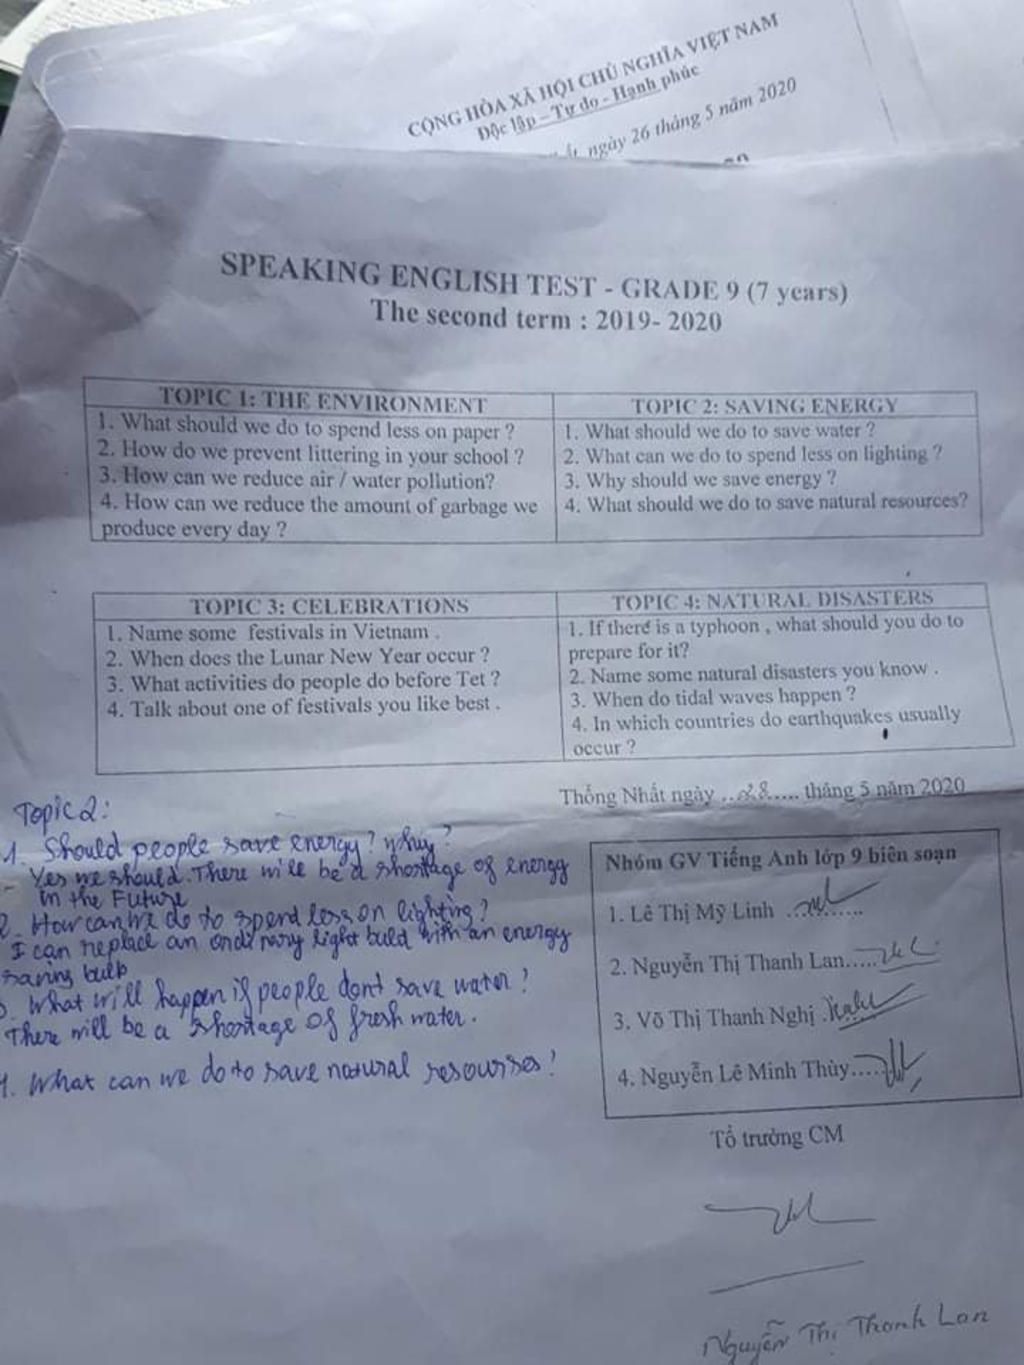 CỘNG HÒA XÃ HỘI CHỦ NGHĨA VIỆT NAM
Độc lập – Tự do - Hạnh phúc
ngày 26 tháng 5 năm 2020
SPEAKING ENGLISH TEST - GRADE 9 (7 years)
The second term : 2019- 2020
TOPIC 1: THE ENVIRONMENT
1. What should we do to spend less on paper ?
2. How do we prevent littering in your school ?
3. How can we reduce air / water pollution?
4. How can we reduce the amount of garbage we
produce every day ?
TOPIC 2: SAVING ENERGY
1. What should we do to save water ?
2. What can we do to spend less on lighting ?
3. Why should we save energy ?
4. What should we do to save natural resources?
TOPIC 3: CELEBRATIONS
1. Name some festivals in Vietnam .
2. When does the Lunar New Year occur ?
3. What activities do people do before Tet ?
4. Talk about one of festivals you like best .
TOPIC 4: NATURAL DISASTERS
1. If there is a typhoon , what should you do to
prepare for it?
2. Name some natural disasters you know .
3. When do tidal waves happen ?
4. In which countries do earthquakes usually
occur ?
Thống Nhất ngày ...28..... tháng 5 năm 2020
Topic 2:
1. Should people save energy? Why?
Yes we should. There will be a shortage of energy
in the Future
2. How can we do to spend less on lighting?
I can replace an ordinary light buld with an energy
saving bulb
3. What will happen if people don't save water?
There will be a shortage of fresh water.
4. What can we do to save natural resourses?
Nhóm GV Tiếng Anh lớp 9 biên soạn
1. Lê Thị Mỹ Linh
2. Nguyễn Thị Thanh Lan
3. Võ Thị Thanh Nghị
4. Nguyễn Lê Minh Thùy
Tổ trưởng CM
Nguyễn Thị Thanh Lan